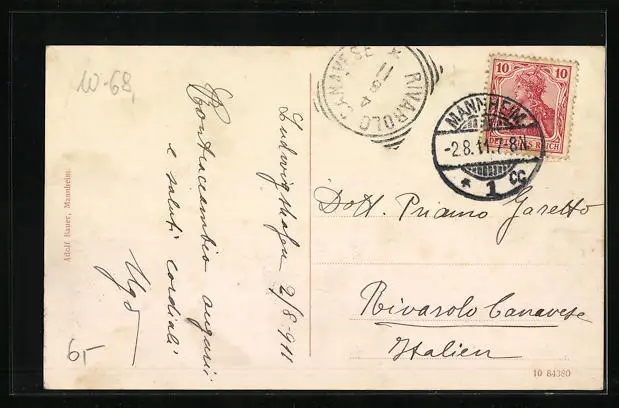 W-68
RIVAROLO CANAVESE
4 8 11
10 10
DEUTSCHES REICH
MANNHEIM
-2.8.11.7-8N
* 1 cc
Ludwigshafen 2/8-911
Contraccambio auguri
e saluti cordiali
Ugo
Adolf Bauer, Mannheim.
6,-
Dott. Priamo Garetto
Rivarolo Canavese
Italien
10 84380